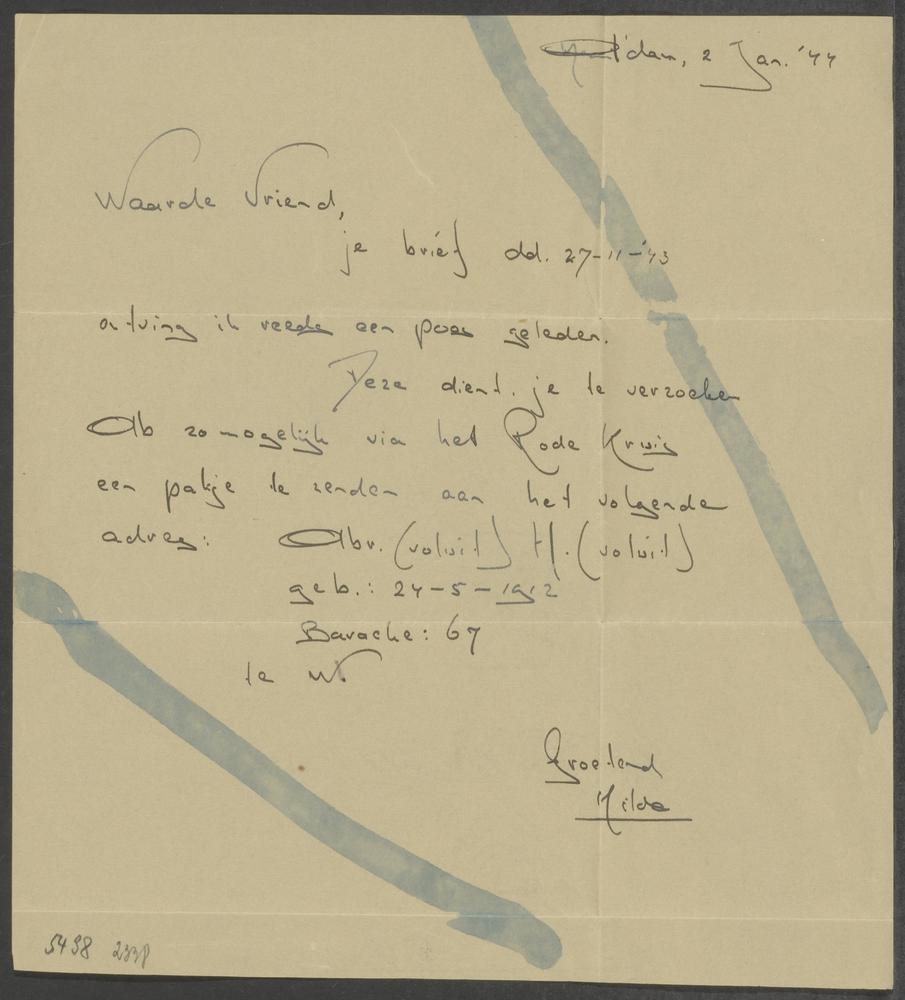 A'dam, 2 Jan. '44
Waarde Vriend,
je brief dd. 27-11-'43
ontving ik reeds een poos geleden.
Deze dient je te verzoeken
Ab zo mogelijk via het Rode Kruis
een pakje te zenden aan het volgende
adres: Abr. (voluit) H. (voluit)
geb.: 24-5-1912
Baracke: 67
te W.
Groetend
Hilda
5438 2338